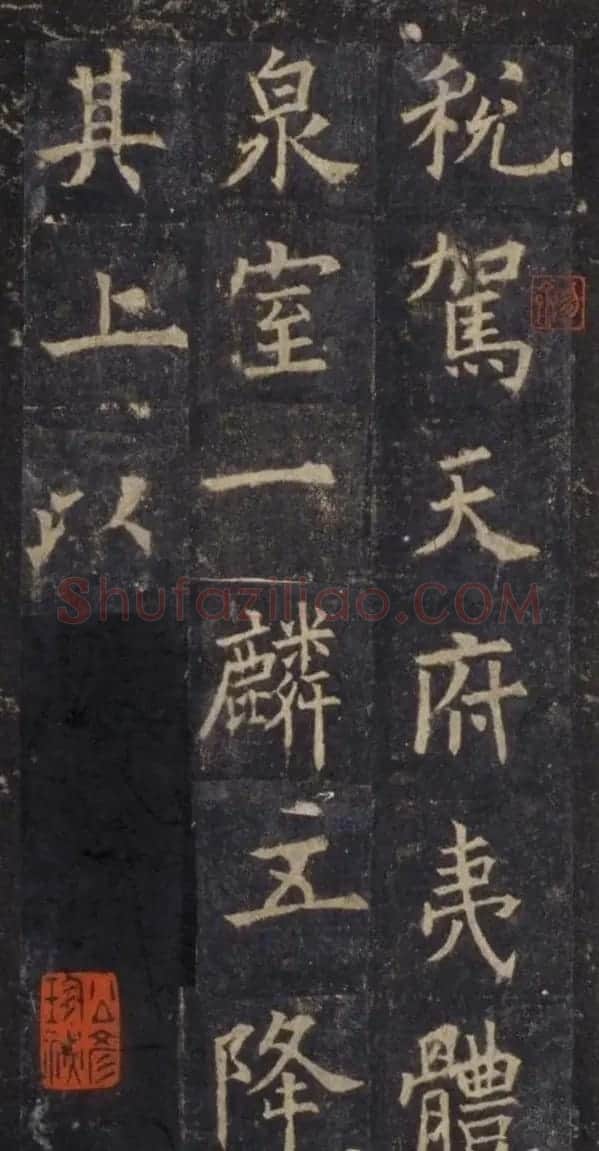 稅駕天府夷體
泉室一麟立降
其上以
Shufaziliao.COM